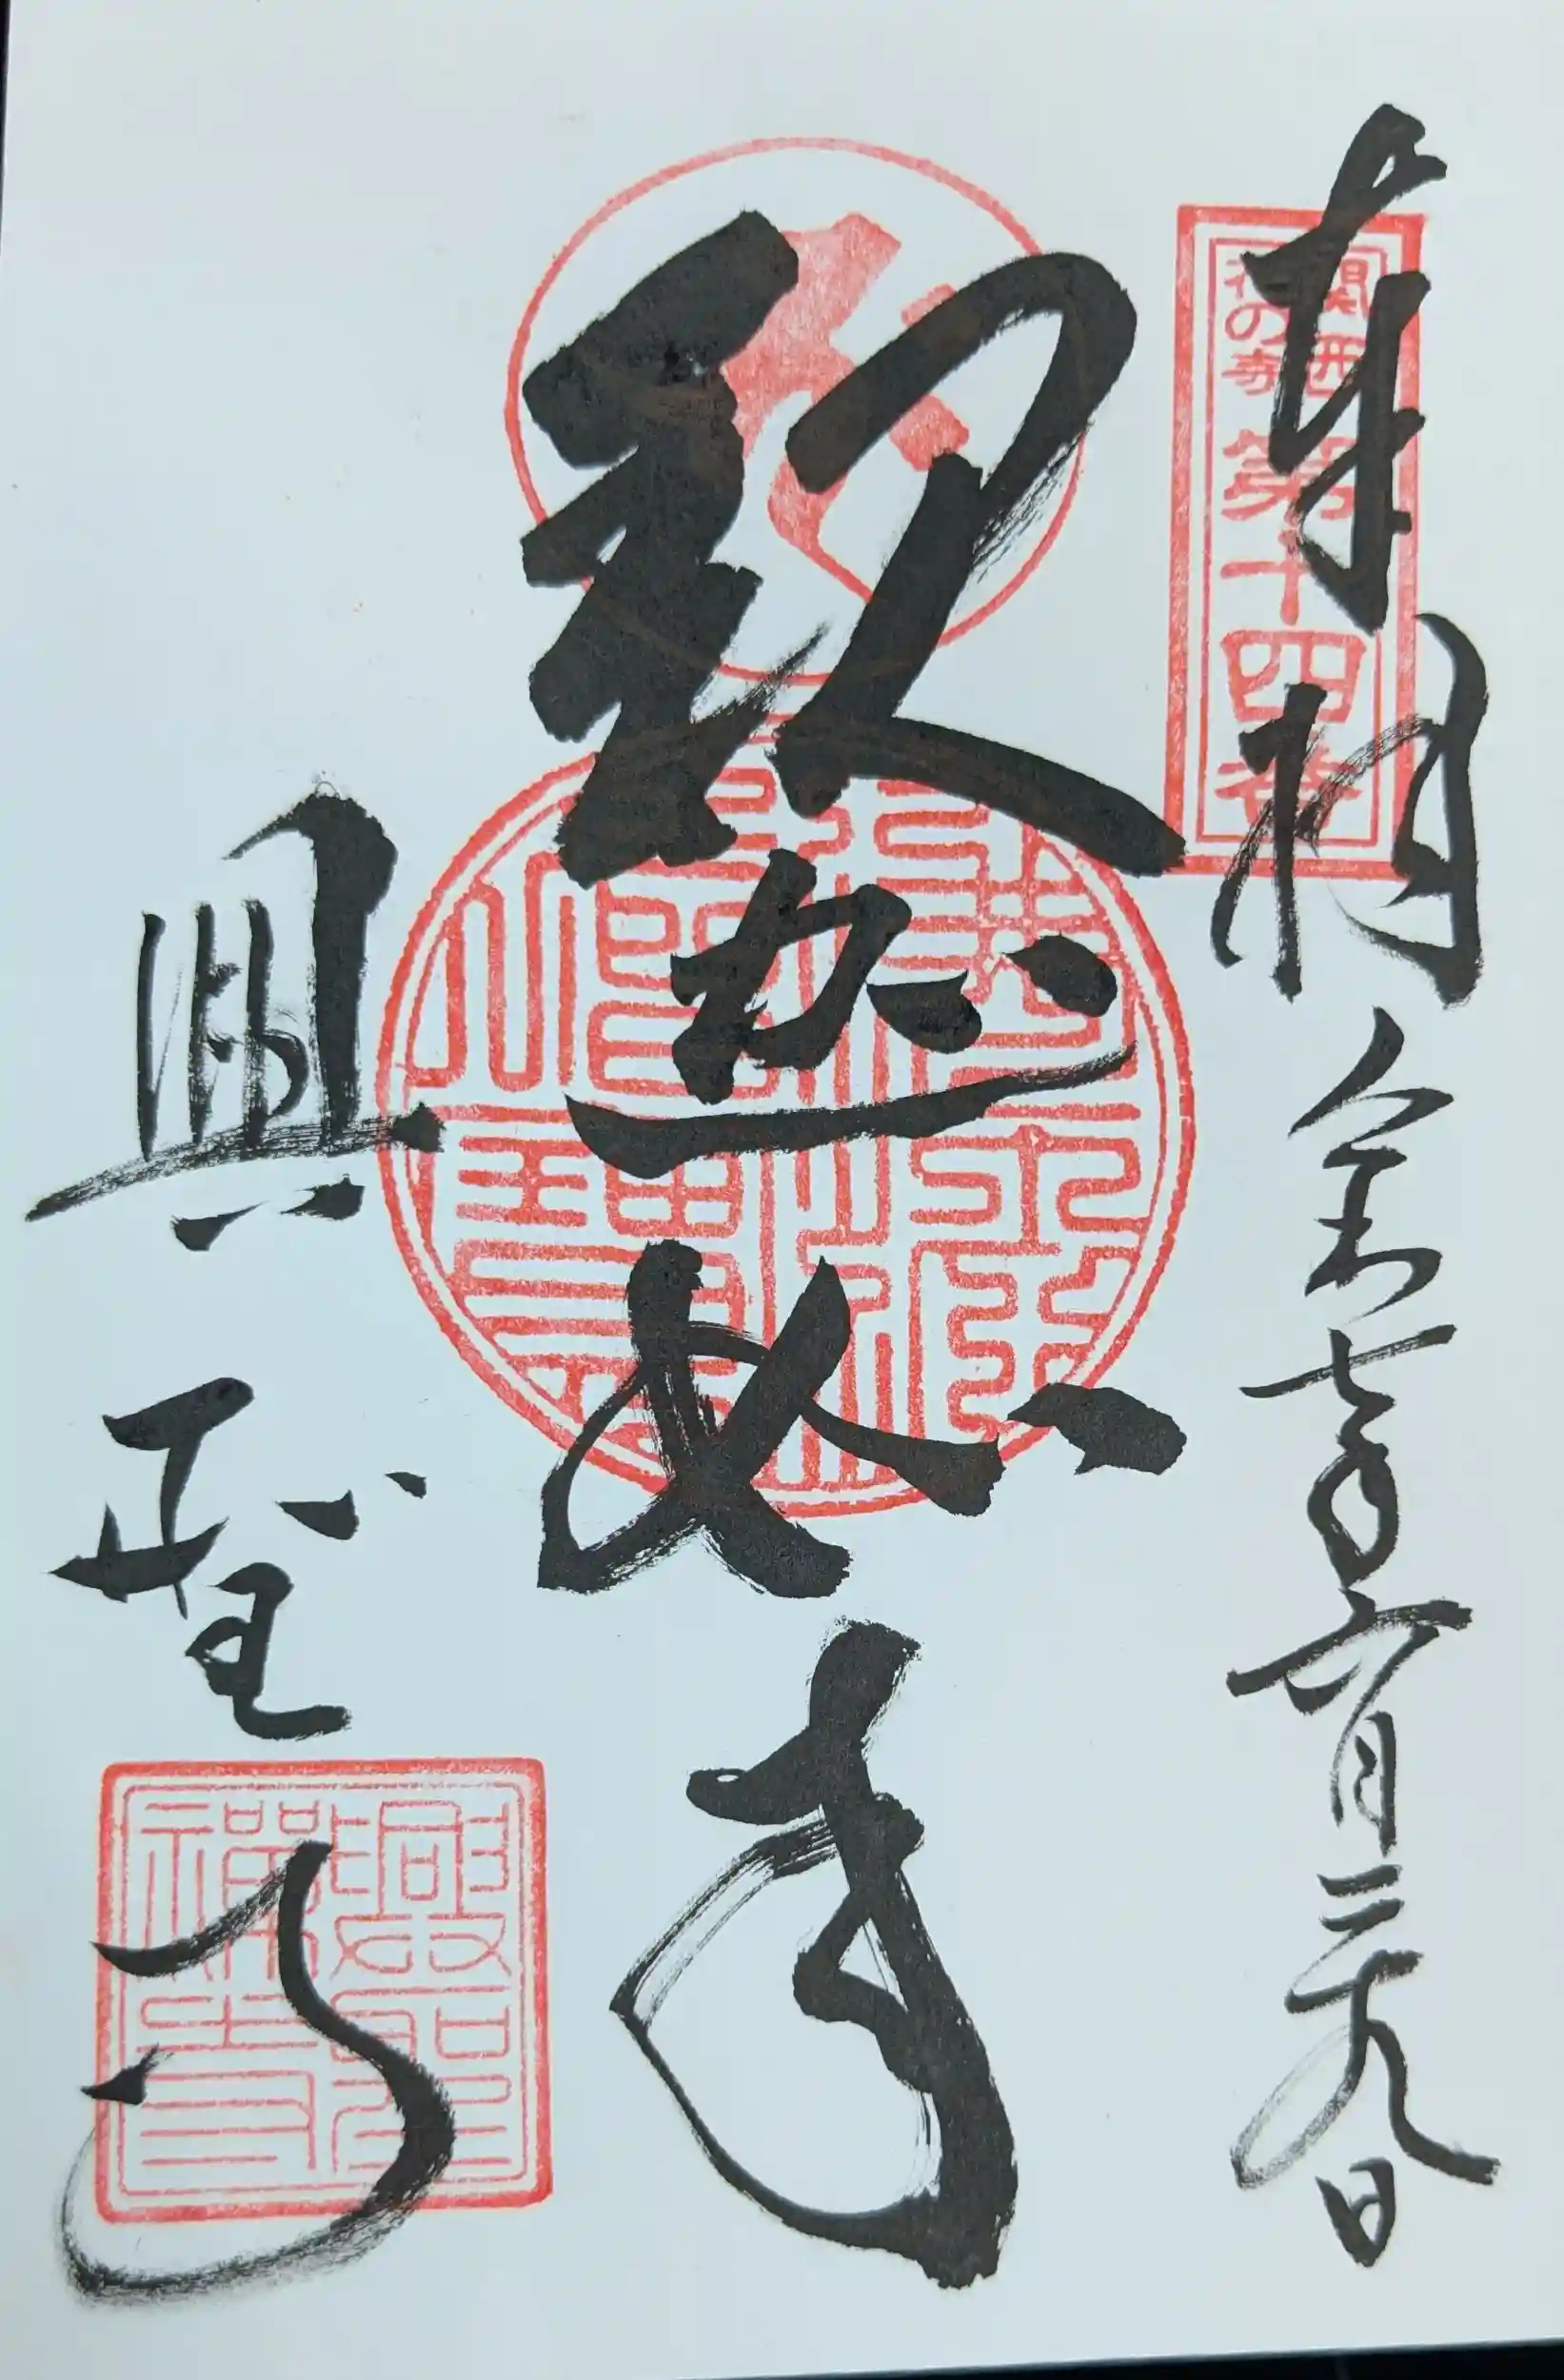 奉拝 令和七年六月二十九日
関西
花の寺
第十四番
釈迦如来
興聖寺
興聖
禅寺